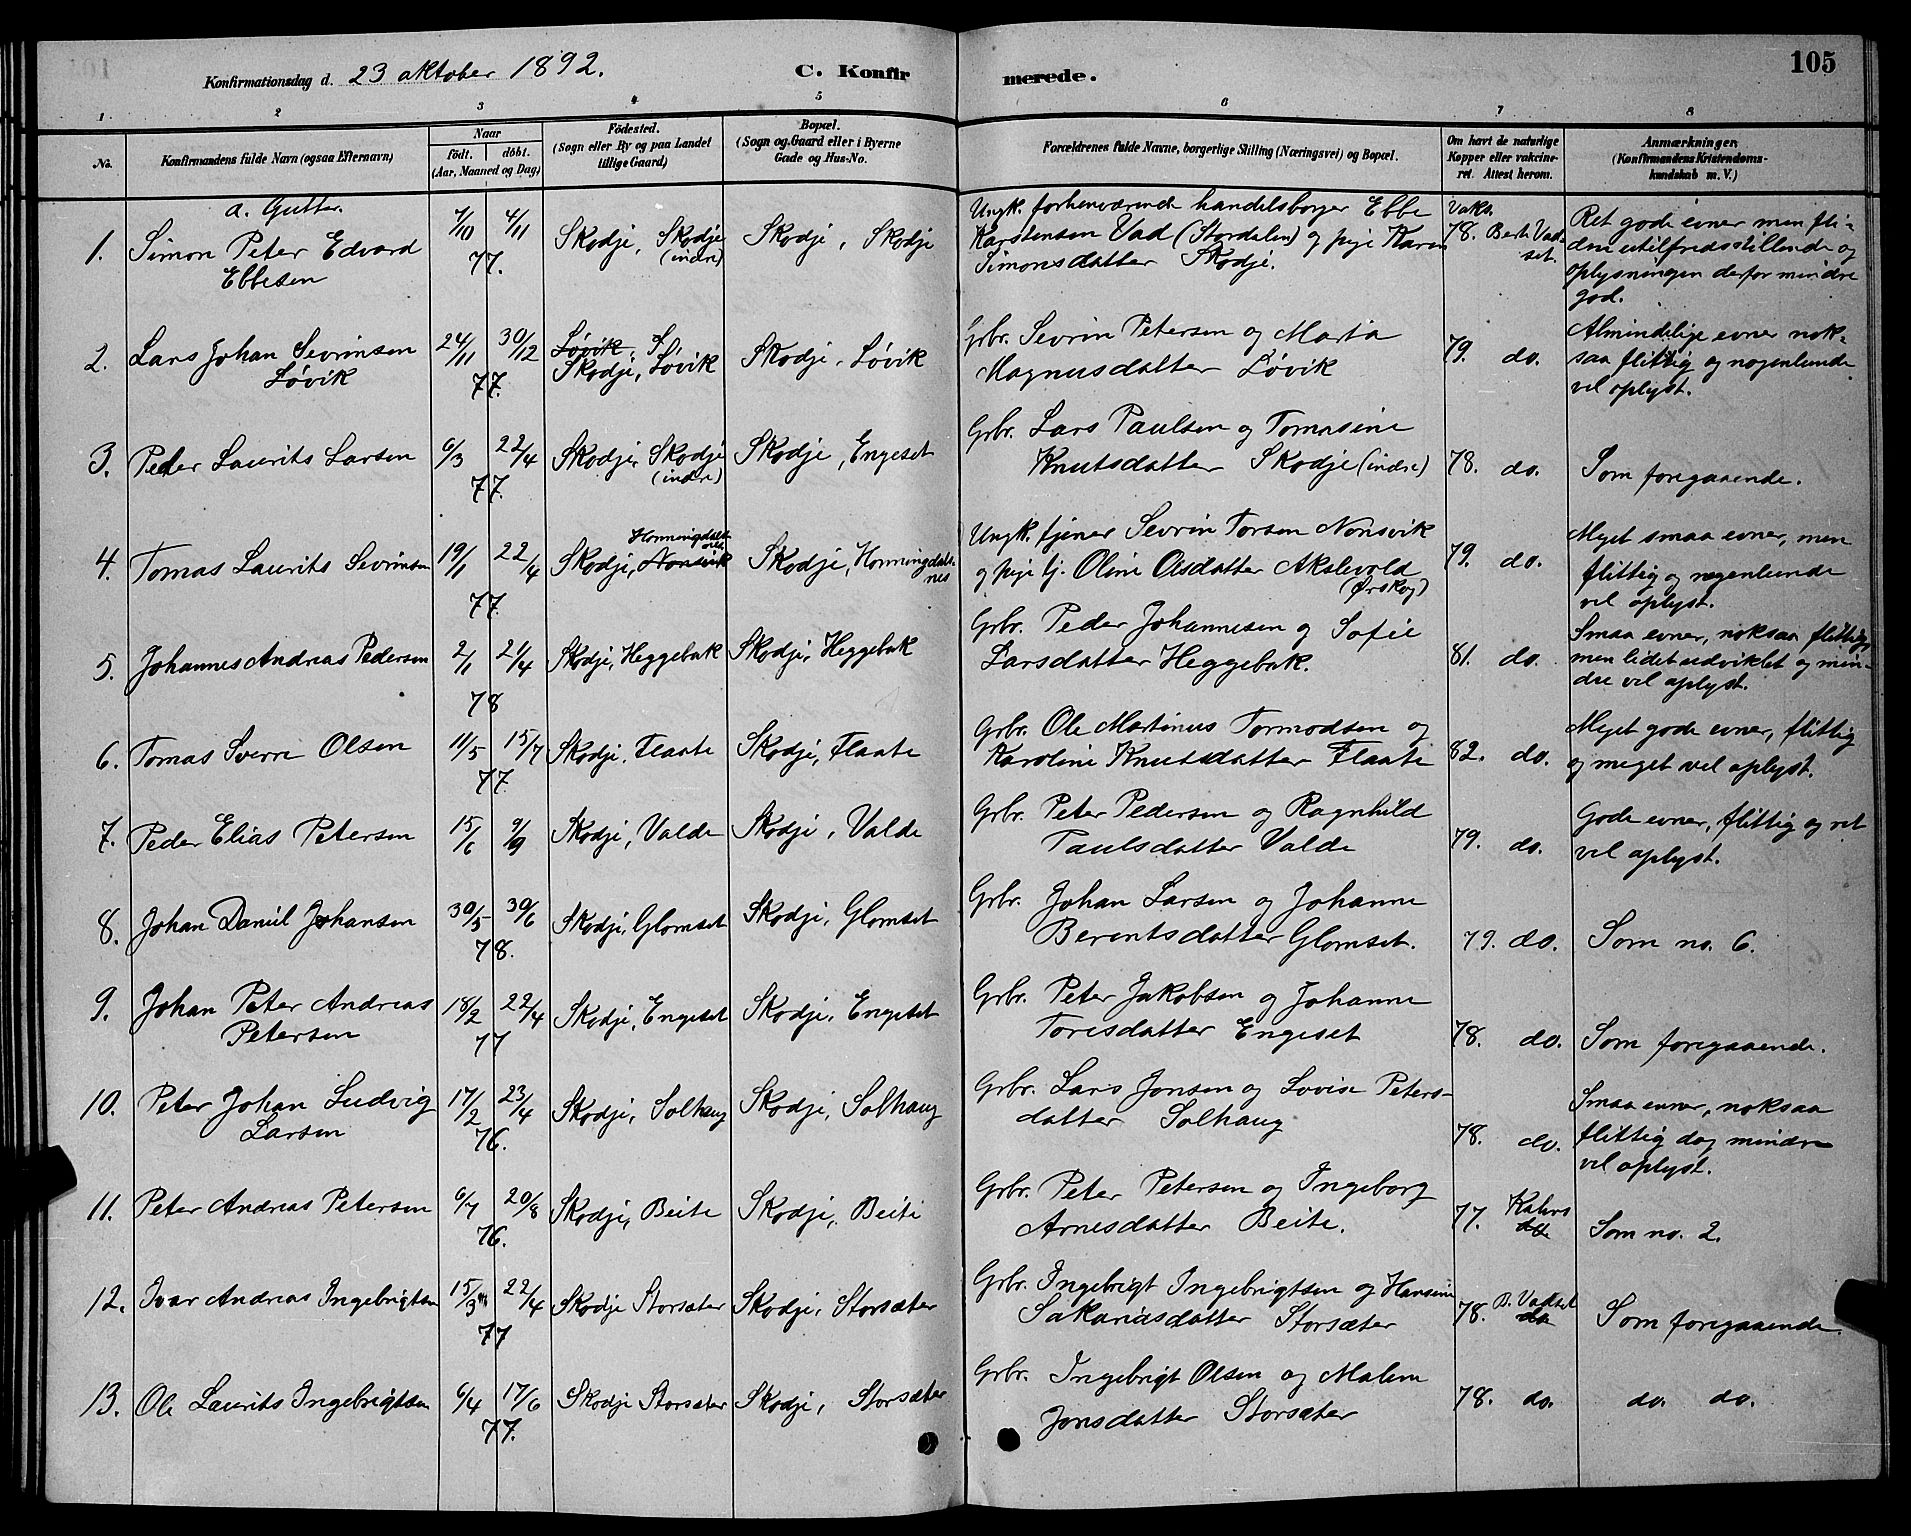 Konfirmationsdag d. 23 oktober 1892.
C. Konfirmerede.
105
1 2 3 4 5 6 7 8
No.
Konfirmandens fulde Navn (ogsaa Efternavn)
Naar
födt. döbt.
(Aar, Maaned og Dag)
Födested.
(Sogn eller By og paa Landet
tillige Gaard)
Bopæl.
(Sogn og Gaard eller i Byerne
Gade og Hus-No.
Forældrenes fulde Navne, borgerlige Stilling (Næringsvei) og Bopæl.
Om havt de naturlige
Kopper eller vakcine-
ret. Attest herom.
Anmærkninger.
(Konfirmandens Kristendoms-
kundskab m. V.)
a. Gutter.
1. Simon Peter Edvard
Ebbesen
7/10 4/11
77.
Skodje, Skodje
(indre)
Skodje, Skodje
Ungk. forhenværende handelsborger Ebbe
Karstensen Vad (Stordalen) og pige Karen
Simonsdatter Skodje.
Vaks.
78. Bert. Vad-
set.
Ret gode evner men fli-
den utilfredsstillende og
oplysningen derfor mindre
god.
2. Lars Johan Sevrinsen
Løvik
24/11 30/12
77.
Løvik, S
Skodje, Løvik
Skodje, Løvik
Grbr. Sevrin Petersen og Marta
Magnusdatter Løvik
79. do.
Almindelige evner nok-
saa flittig og nogenlunde
vel oplyst.
3. Peder Laurits Larsen
6/3 22/4
77.
Skodje, Skodje
(indre)
Skodje, Engeset
Grbr. Lars Paulsen og Tomasine
Knutsdatter Skodje (indre)
78. do.
Som foregaaende.
4. Tomas Laurits Sevrinsen
19/1 22/4
77.
Honningdals
Skodje, Nonsvik
Skodje, Honningdals-
nes
Ungk. tjener Sevrin Torsen Nonsvik
og pige tj. Oline Olsdatter Akslevold
(Ørskog)
79. do.
Meget smaa evner, men
flittig og nogenlunde
vel oplyst.
5. Johannes Andreas Pedersen
2/1 21/4
78
Skodje, Heggebak
Skodje, Heggebak
Grbr. Peder Johannesen og Sofie
Larsdatter Heggebak.
81. do.
Smaa evner, noksaa flittig,
men lidet udviklet og min-
dre vel oplyst.
6. Tomas Sverre Olsen
11/5 15/7
77.
Skodje, Flaate
Skodje, Flaate
Grbr. Ole Martinus Tormodsen og
Karoline Knutsdatter Flaate
82. do.
Meget gode evner, flittig
og meget vel oplyst.
7. Peder Elias Petersen
15/6 9/9
Skodje, Valde
Skodje, Valde
Grbr. Peter Pedersen og Ragnhild
Paulsdatter Valde
79. do.
Gode evner, flittig og ret
vel oplyst.
8. Johan Daniel Johansen
30/5 30/6
78.
Skodje, Glomset
Skodje, Glomset
Grbr. Johan Larsen og Johanne
Berentsdatter Glomset.
79. do.
Som no. 6.
9. Johan Peter Andreas
Petersen
18/2 22/4
77
Skodje, Engeset
Skodje, Engeset
Grbr. Peter Jakobsen og Johanne
Toresdatter Engeset
78. do.
Som foregaaende.
10. Peter Johan Ludvig
Larsen
17/2 23/4
76.
Skodje, Solhaug
Skodje, Solhaug
Grbr. Lars Jonsen og Lovise Peters-
datter Solhaug
78. do.
Smaa evner, noksaa
flittig dog mindre
vel oplyst.
11. Peter Andreas Petersen
6/7 20/8
76.
Skodje, Beite
Skodje, Beite
Grbr. Peter Petersen og Ingeborg
Arnesdatter Beite.
77. Kahrs
do
Som no. 2.
12. Ivar Andreas Ingebrigtsen
15/3 22/4
77
Skodje Storsæter
Skodje, Storsæter
Grbr. Ingebrigt Ingebrigtsen og Hansine
Sakariasdatter Storsæter
78. B. Vadset
do
Som foregaaende.
13. Ole Laurits Ingebrigtsen
6/4 17/6
77.
Skodje Storsæter
Skodje, Storsæter
Grbr. Ingebrigt Olsen og Malene
Jonsdatter Storsæter
78. do.
do. do.